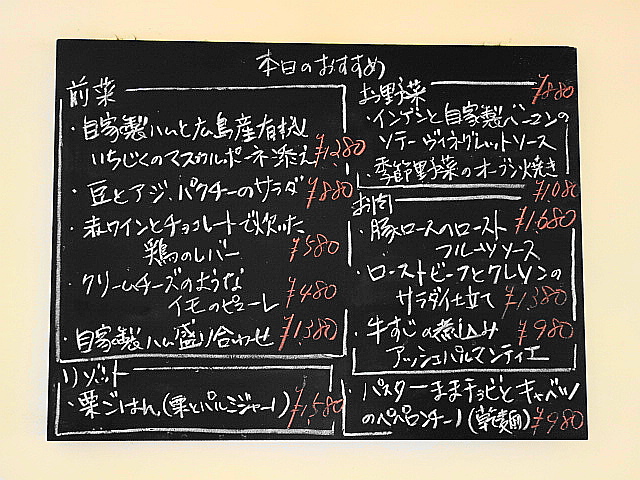 本日のおすすめ
前菜
・自家製ハムと広島産有機
いちじくのマスカルポーネ添え ¥1280
・豆とアジ、パクチーのサラダ ¥880
・赤ワインとチョコレートで炊いた
鶏のレバー ¥580
・クリームチーズのような
イモのピューレ ¥480
・自家製ハム盛り合わせ ¥1380
リゾット
・栗ごはん(栗とパルミジャーノ) ¥1,580
お野菜 ¥880
・インゲンと自家製ベーコンの
ソテー ヴィネグレットソース
・季節野菜のオーブン焼き
¥1080
お肉
・豚ロースのロースト ¥1,680
フルーツソース
・ローストビーフとクレソンの
サラダ仕立て ¥1,380
・牛すじの煮込み ¥980
アッシュパルマンティエ
・パスター ままチョビとキャベツ
のペペロンチーノ(乾麺) ¥980